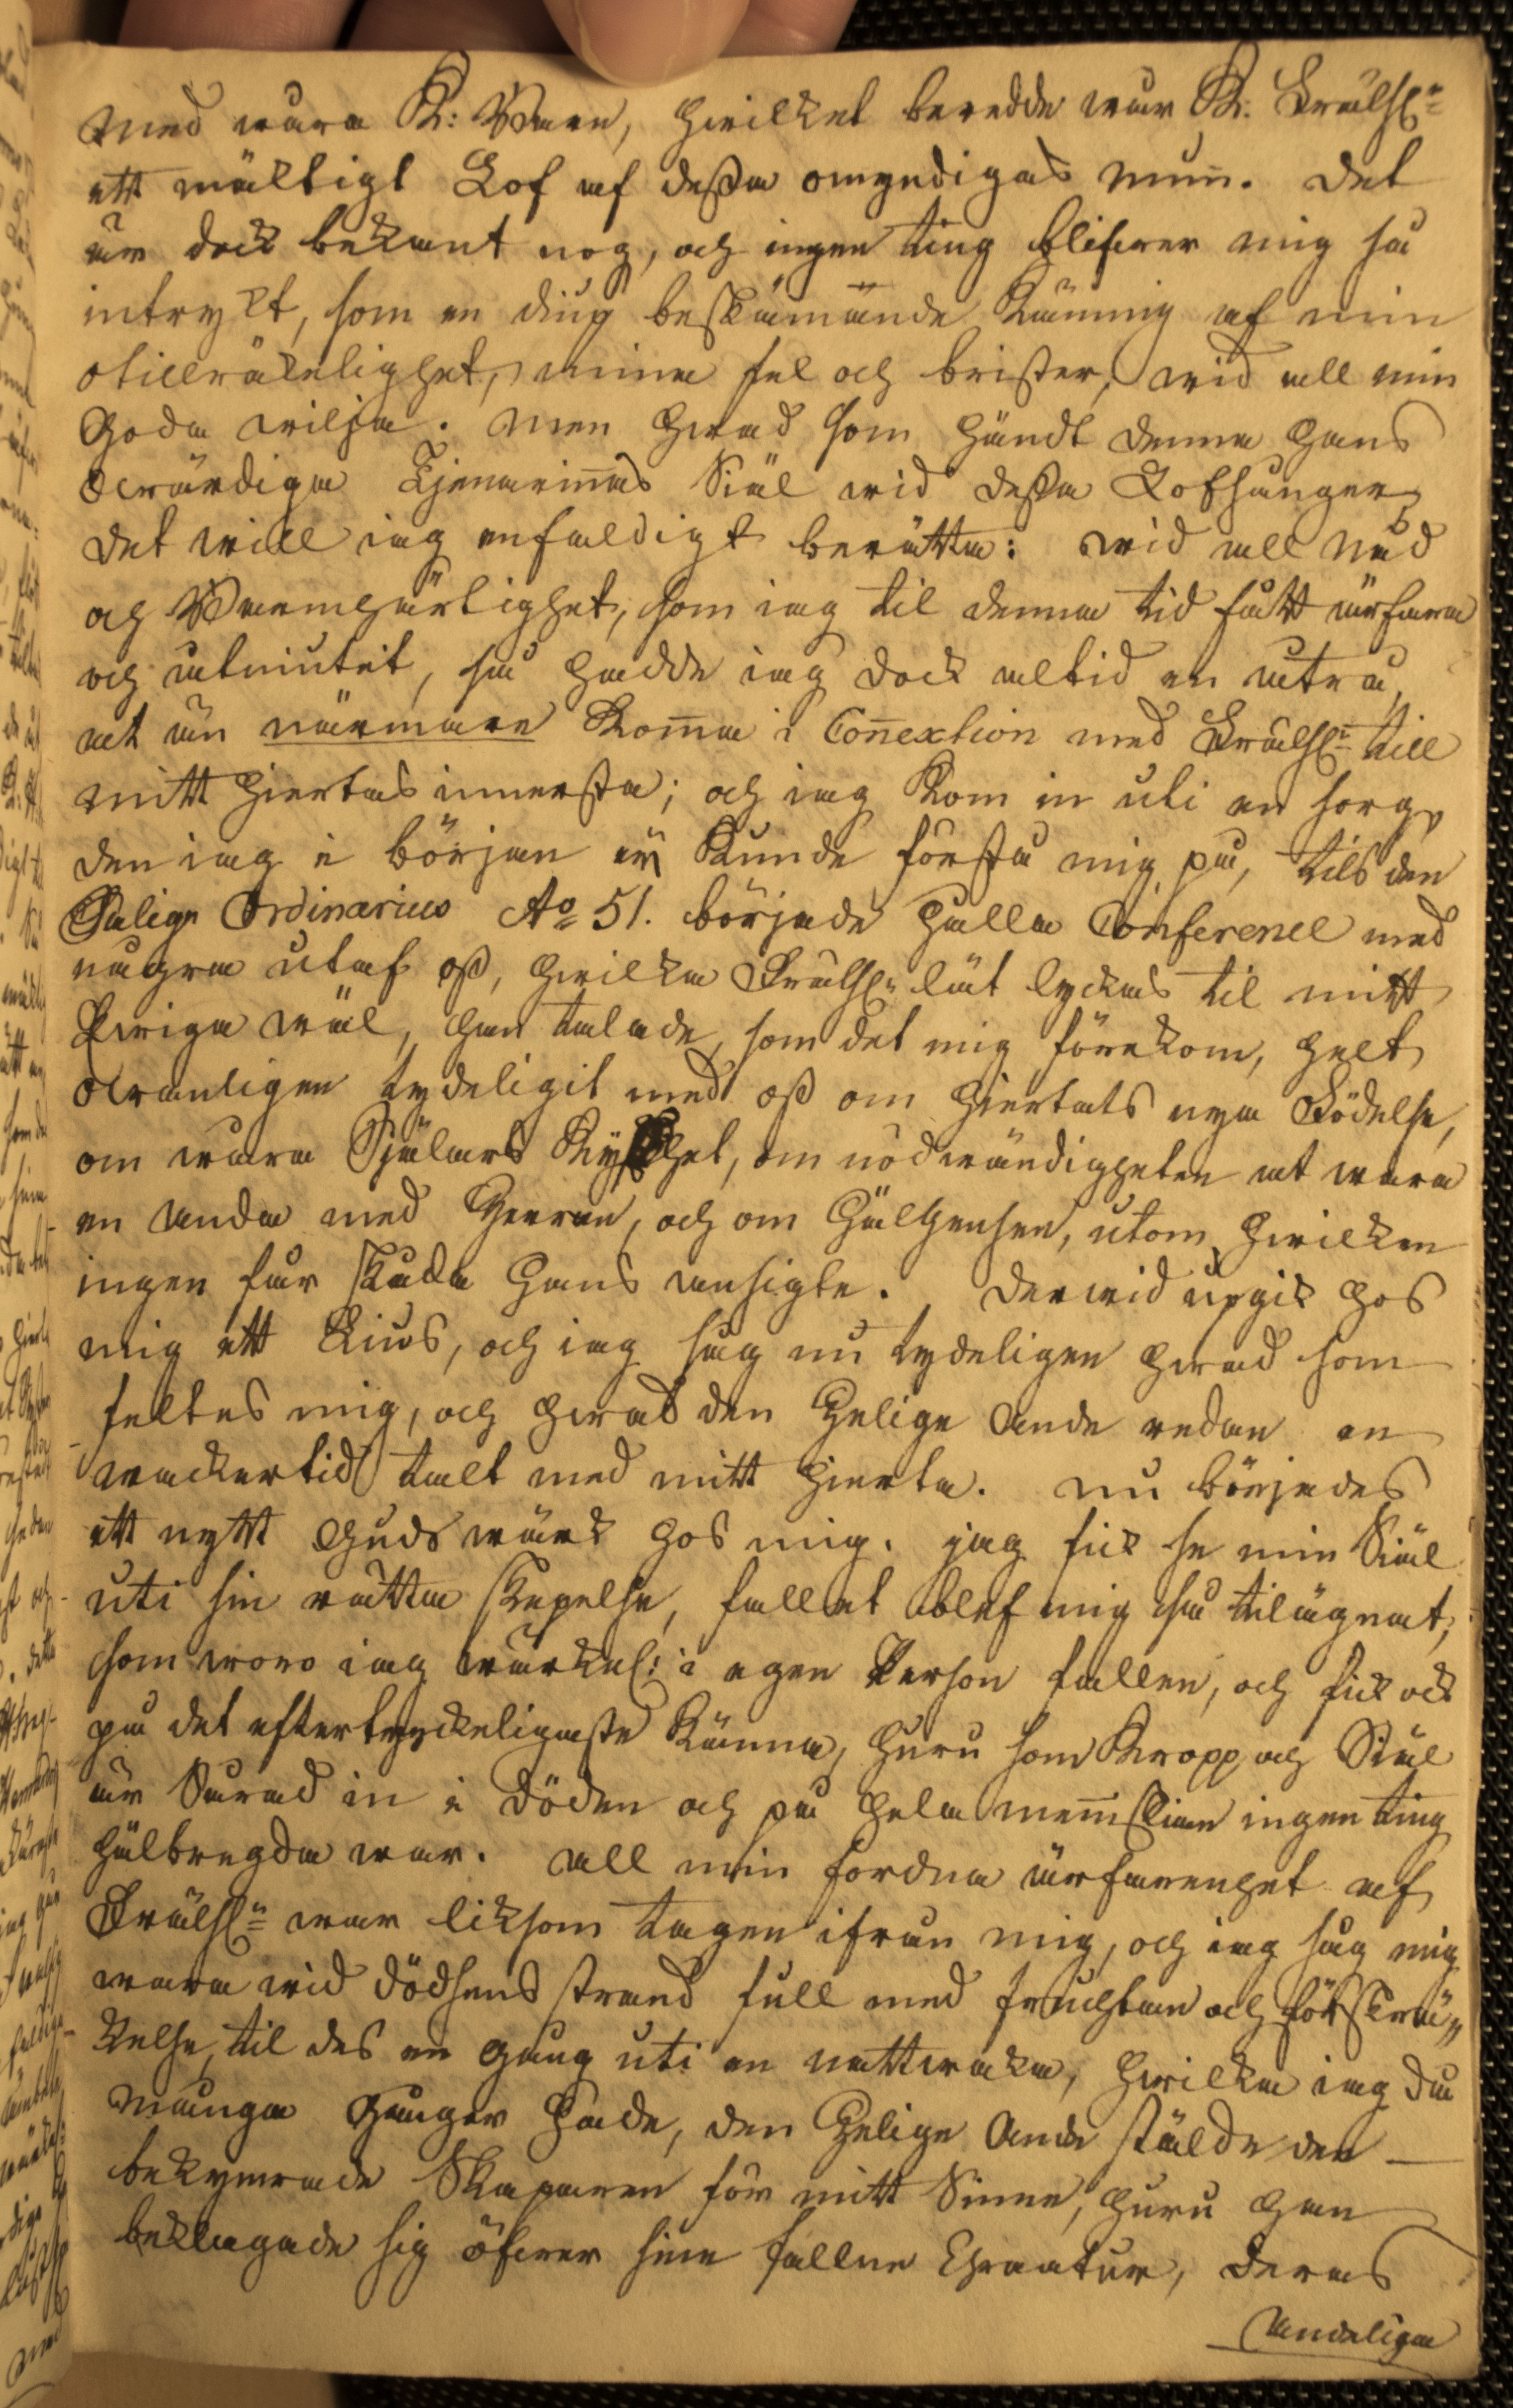 med wåra K: Barn, hwilket beredde wår K. Frälsn:
ett mäktigt Lof af dessa omyndigas mun̄. Det
är dock bekant nog, och ingen ting blifwer mig så
intrykt, som en diup beskämande Känning af min
otillräckelighet, mina fel och brister, wid all min
goda wilja. Men hwad som händt denna hans
Owärdiga Tjenarin̄as Siäl wid dessa Lofsånger,
det will iag enfaldigt berätta: wid all nåd
och Barmhärtighet, som iag til denna tid fått ärfara
och åtniutit, så hadde iag dock altid en åtrå,
at än närmare kom̄a i Con̄extion med Frälsn: till
mitt hiertas innersta; och iag kom in uti en sorg,
den iag i början ej kunde förstå mig på, tils den
Salige Ordinarius Ao 51. började hålla Conferencer med
några utaf oss, hwilka Frälsn: lät lyckas til mitt
Ewiga wäl, han talade, som det mig förekom, helt
owanligen tydeligit med oss om hiertats nya Födelse,
om wåra Själars Kyskhet, om nödwändigheten at wara
en Anda med Herran, och om Hälgelsen, utom hwilken
ingen får skåda Hans ansigte. Derwid upgik hos
mig ett Lius, och iag såg nu tydeligen hwad som
feltes mig, och hwad den Helige Ande redan en
wacker tid talt med mitt hierta. Nu börjades
ett nytt Guds wärk hos mig. jag fick se min Siäl
uti sin rätta skepelse, fallet blef mig så tilägnat,
som woro iag wärkel: i egen Person fallen, och fick ock
på det eftertryckeligaste känna, huru som Kropp och Siäl
är Sårad in i Döden och på hela men̄iskian ingen ting
hälbregda war. All min fordna ärfarenhet af
Frälsn: war liksom tagen ifrån mig, och iag såg mig
wara wid dödsens strand full med fruchtan och förskräc-
kelse, til des en gång uti en nattwaka, hwilka iag då
många gånger hade, den Helige Ande stälde den
bekymrade Skaparen för mitt Sinne, huru han
beklagade sig öfwer sine fallne Chreatur, deras
Andeliga